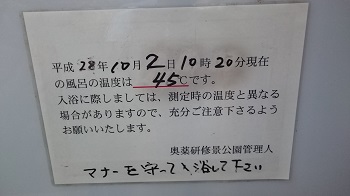 平成28年10月2日10時20分現在
の風呂の温度は 45℃です。
入浴に際しましては、測定時の温度と異なる
場合がありますので、充分ご注意下さるよう
お願いいたします。
奥薬研修景公園管理人
マナーを守って入浴して下さい